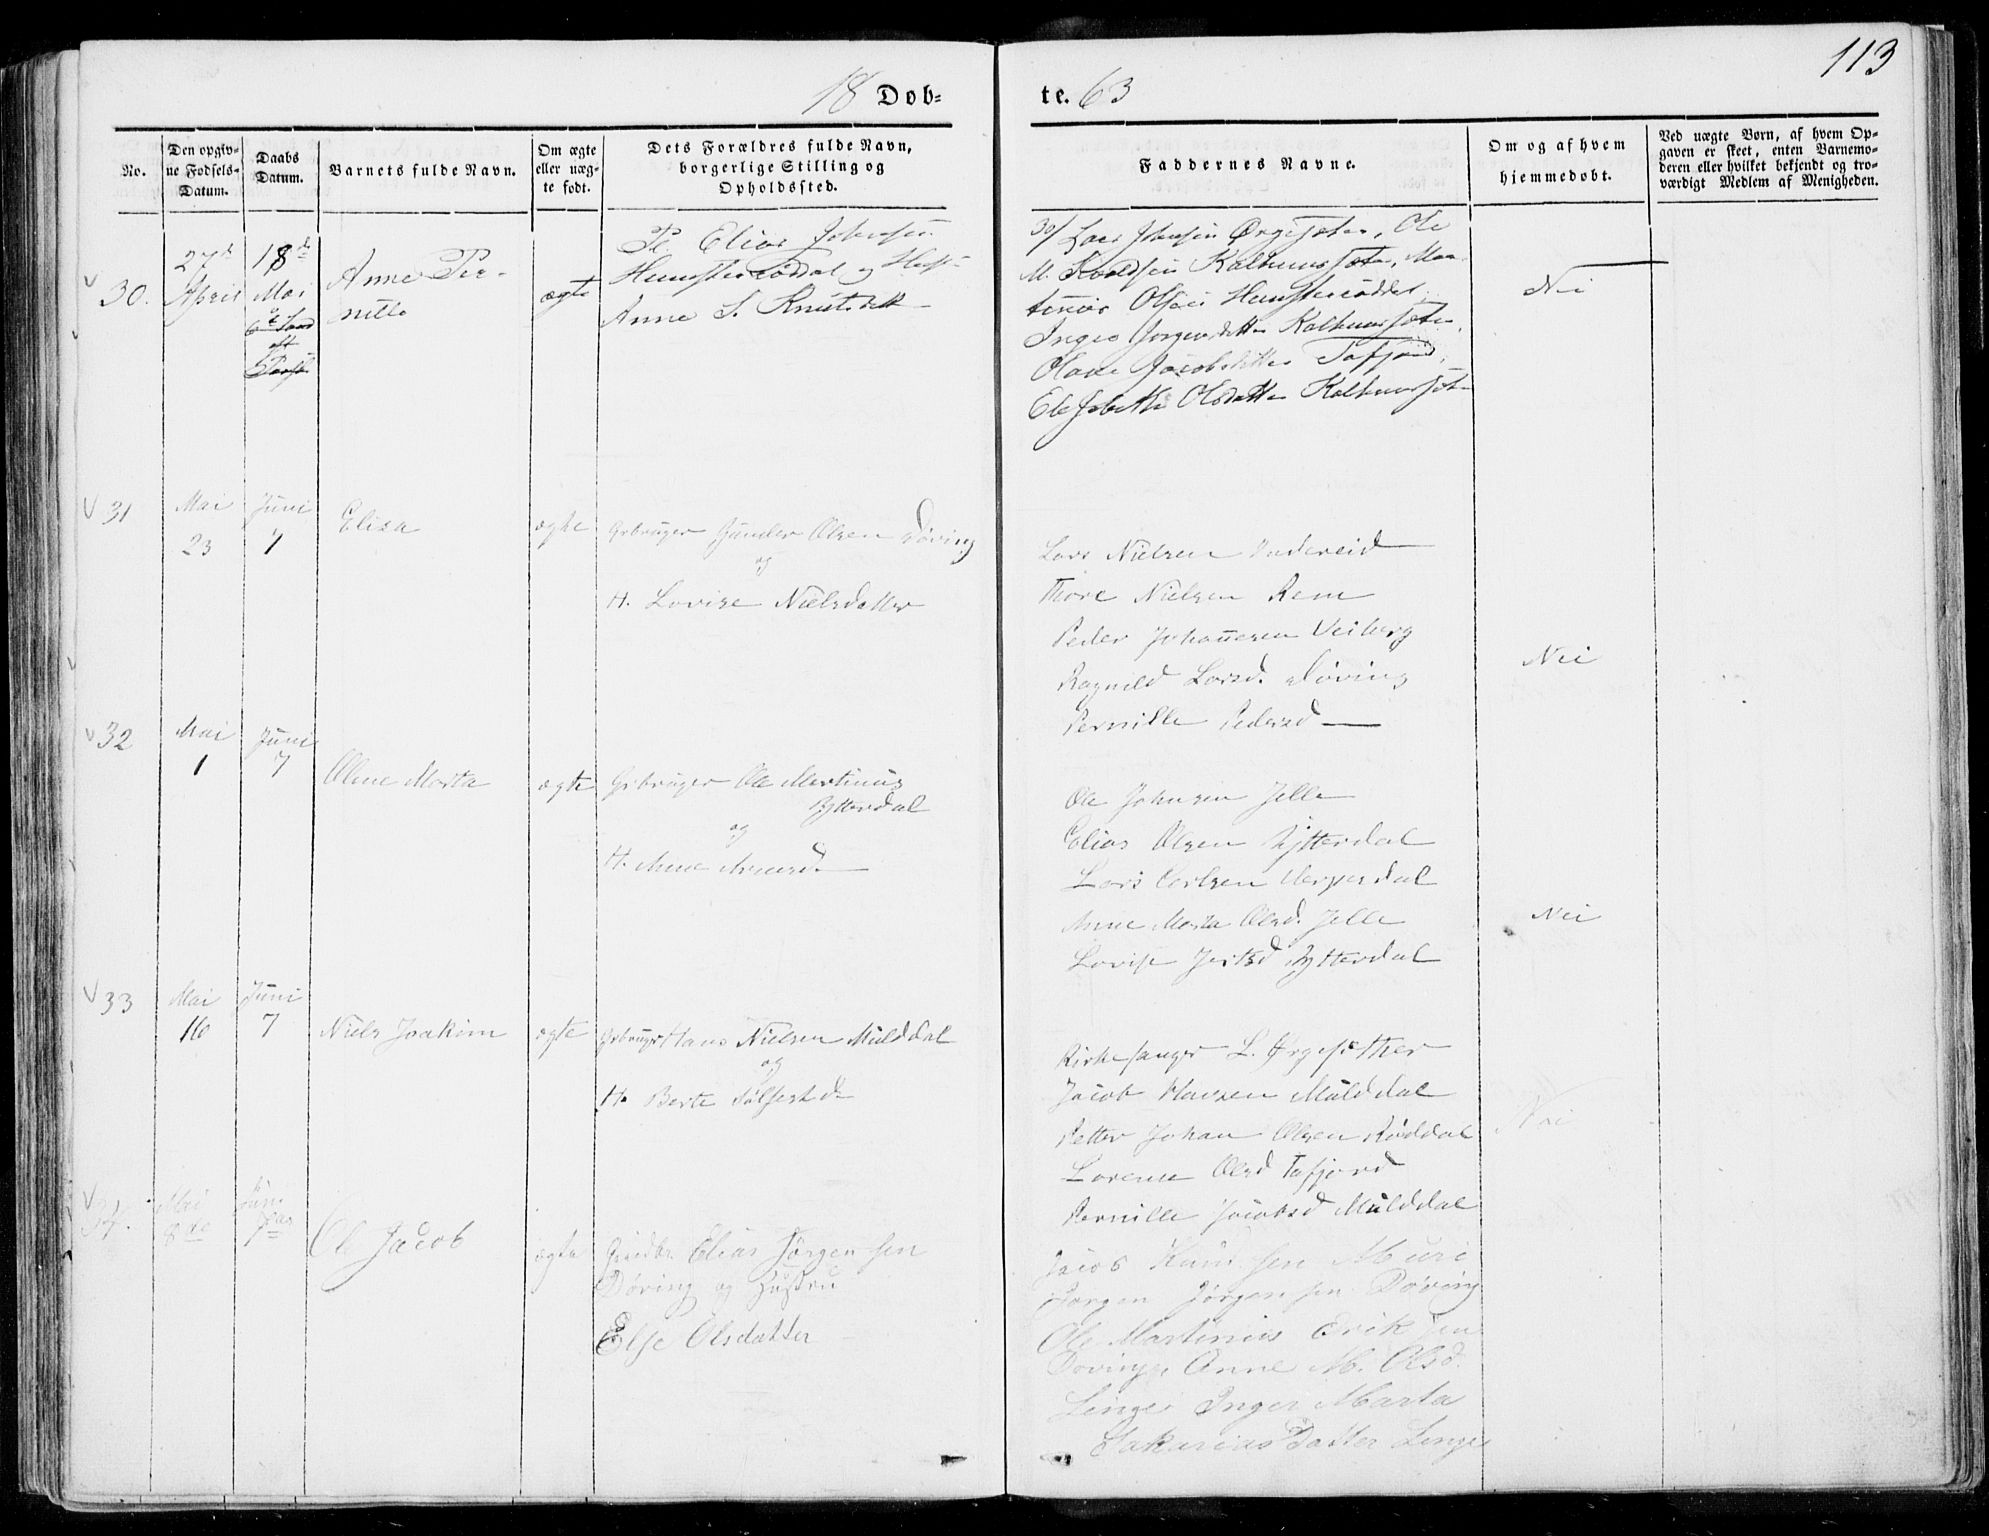 113
18 Dob=
te. 63
No.
Den opgiv-
ne Fodsels-
Datum.
Daabs
Datum.
Barnets fulde Navn.
Om ægte
eller uæg-
te født.
Dets Forældres fulde Navn,
borgerlige Stilling og
Opholdssted.
Faddernes Navne.
Om og af hvem
hjemmedobt.
Ved uægte Born, af hvem Op-
gaven er skeet, enten Barnemo-
deren eller hvilket bekjendt og tro-
værdigt Medlem af Menigheden.
30.
27d
April
18d
Mai
Anne Per-
nille
ægte
Elias Johnsen
og
Anne S. Knutsdtt
30/ Lars Johnsen Ørgesæter, Ole
M. Kaldhussæter, Mar-
Olsen
Inger Jørgensdatter Kaldhussæter,
Olave Jacobsdatter Tafjord,
Olsdatter Kaldhussæt
Nei
31
Mai
23
Juni
7
Elisa
ægte
Grbruger Gunder Olsen Døving
og
H. Lovise Nielsdatter
Lars Nielsen Indereid
Thore Nielsen Rem
Peder Johannesen Veiberg
Ragnild Larsd. Døving
Pernille Pedersd —
Nei
32
Mai
1
Juni
7
Oline Marta
ægte
Grbruger Ole Martinus
Ytterdal
og
H. Anne Arnesd. —
Ole Johnsen Jelle
Elias Olsen Ytterdal
Lars Carlsen Herjesdal
Anne Marta Olsd. Jelle
Lovise Ytterdal
Nei
33
Mai
16
Juni
7
Niels Joakim
ægte
Grbruger Hans Nielsen Mulddal
og
H. Berte
Kirkesanger L. Ørgesæther
Jacob Hansen Mulddal
Petter Johan Olsen Røddal
Lorense Olsd Tafjord
Pernille Jacobsd Mulddal
Nei
34.
Mai
8de
Juni
7de
Ole Jacob
ægte
Gaardbr. Elias Jørgensen
Døving og Hustru
Else Olsdatter
Jacob Knudsen Muri
Jørgen Jørgensen Døving
Ole Martinus Eriksen
Døving, Anne M. Olsd.
Linge Inger Marta
Sakariasdatter Linge